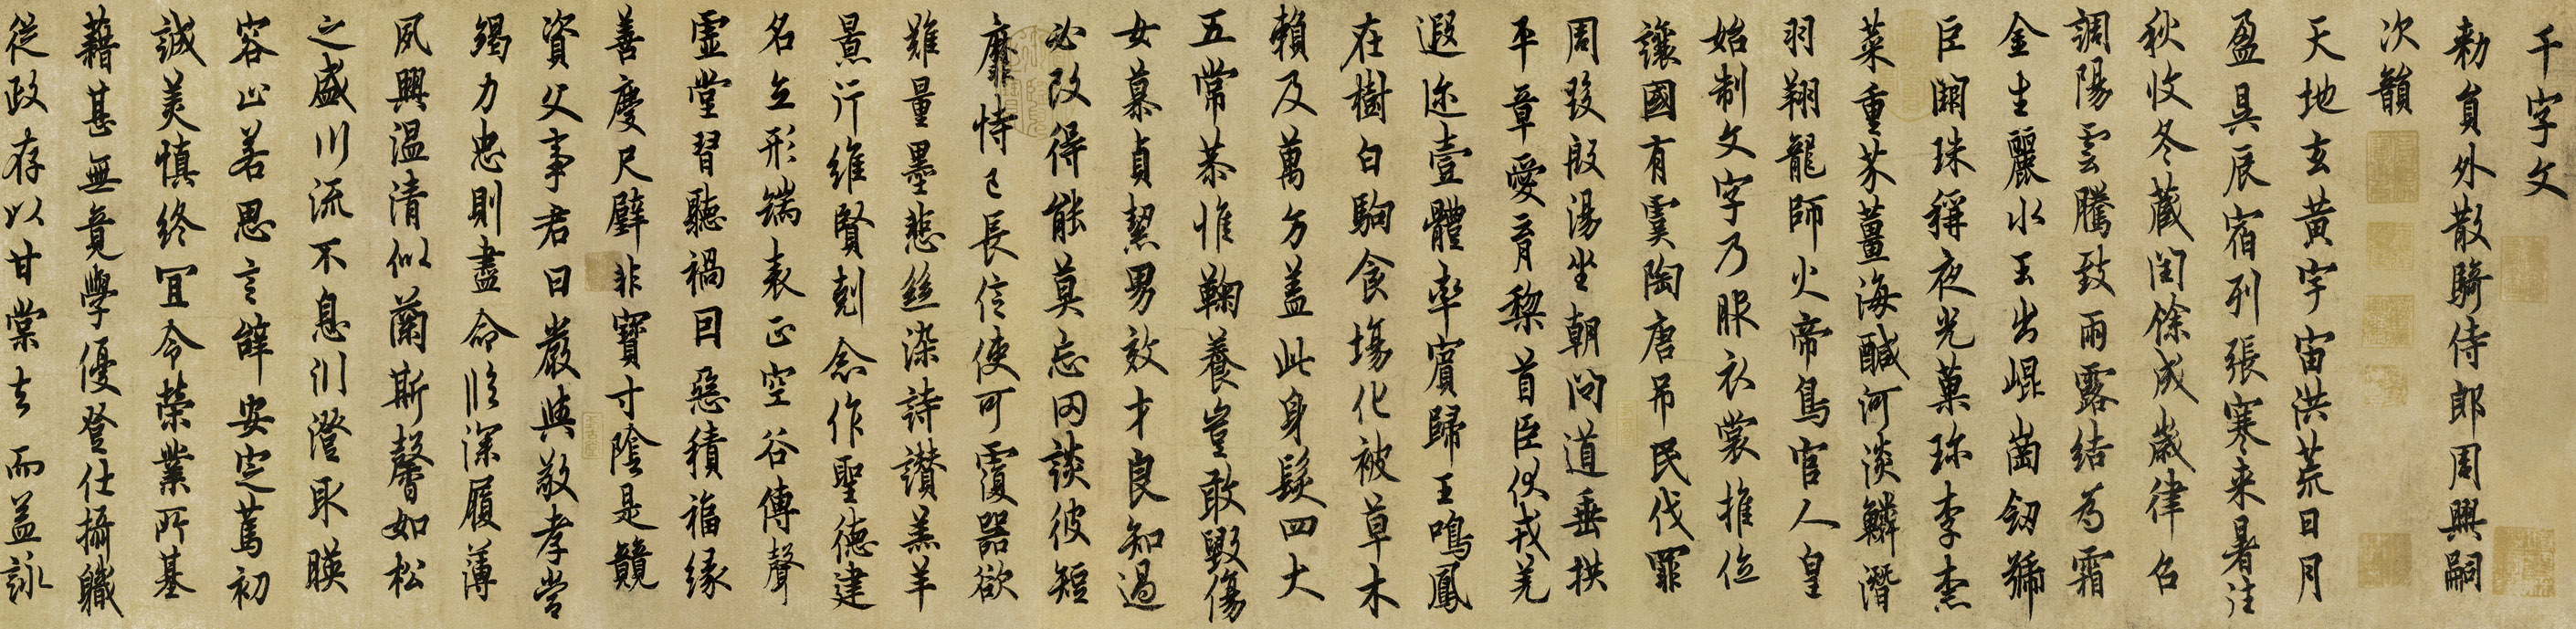 千字文
敕員外散騎侍郎周興嗣
次韻
天地玄黃宇宙洪荒日月
盈昃辰宿列張寒来暑往
秋收冬藏閏餘成歲律召
調陽雲騰致雨露結為霜
金生麗水玉出崐崗劒號
巨闕珠稱夜光菓珍李柰
菜重芥薑海醎河淡鱗潛
羽翔龍師火帝鳥官人皇
始制文字乃服衣裳推位
讓國有虞陶唐弔民伐罪
周發殷湯坐朝問道垂拱
平章愛育黎首臣伏戎羌
遐迩壹體率賓歸王鳴鳳
在樹白駒食場化被草木
賴及萬方蓋此身髮四大
五常恭惟鞠養豈敢毀傷
女慕貞絜男效才良知過
必改得能莫忘罔談彼短
靡恃己長信使可覆器欲
難量墨悲絲染詩讚羔羊
景行維賢剋念作聖德建
名立形端表正空谷傳聲
虛堂習聽禍因惡積福緣
善慶尺璧非寶寸陰是競
資父事君曰嚴與敬孝當
竭力忠則盡命臨深履薄
夙興温清似蘭斯馨如松
之盛川流不息淵澄取暎
容止若思言辭安定篤初
誠美慎終宜令榮業所基
藉甚無竟學優登仕攝職
從政存以甘棠去而益詠